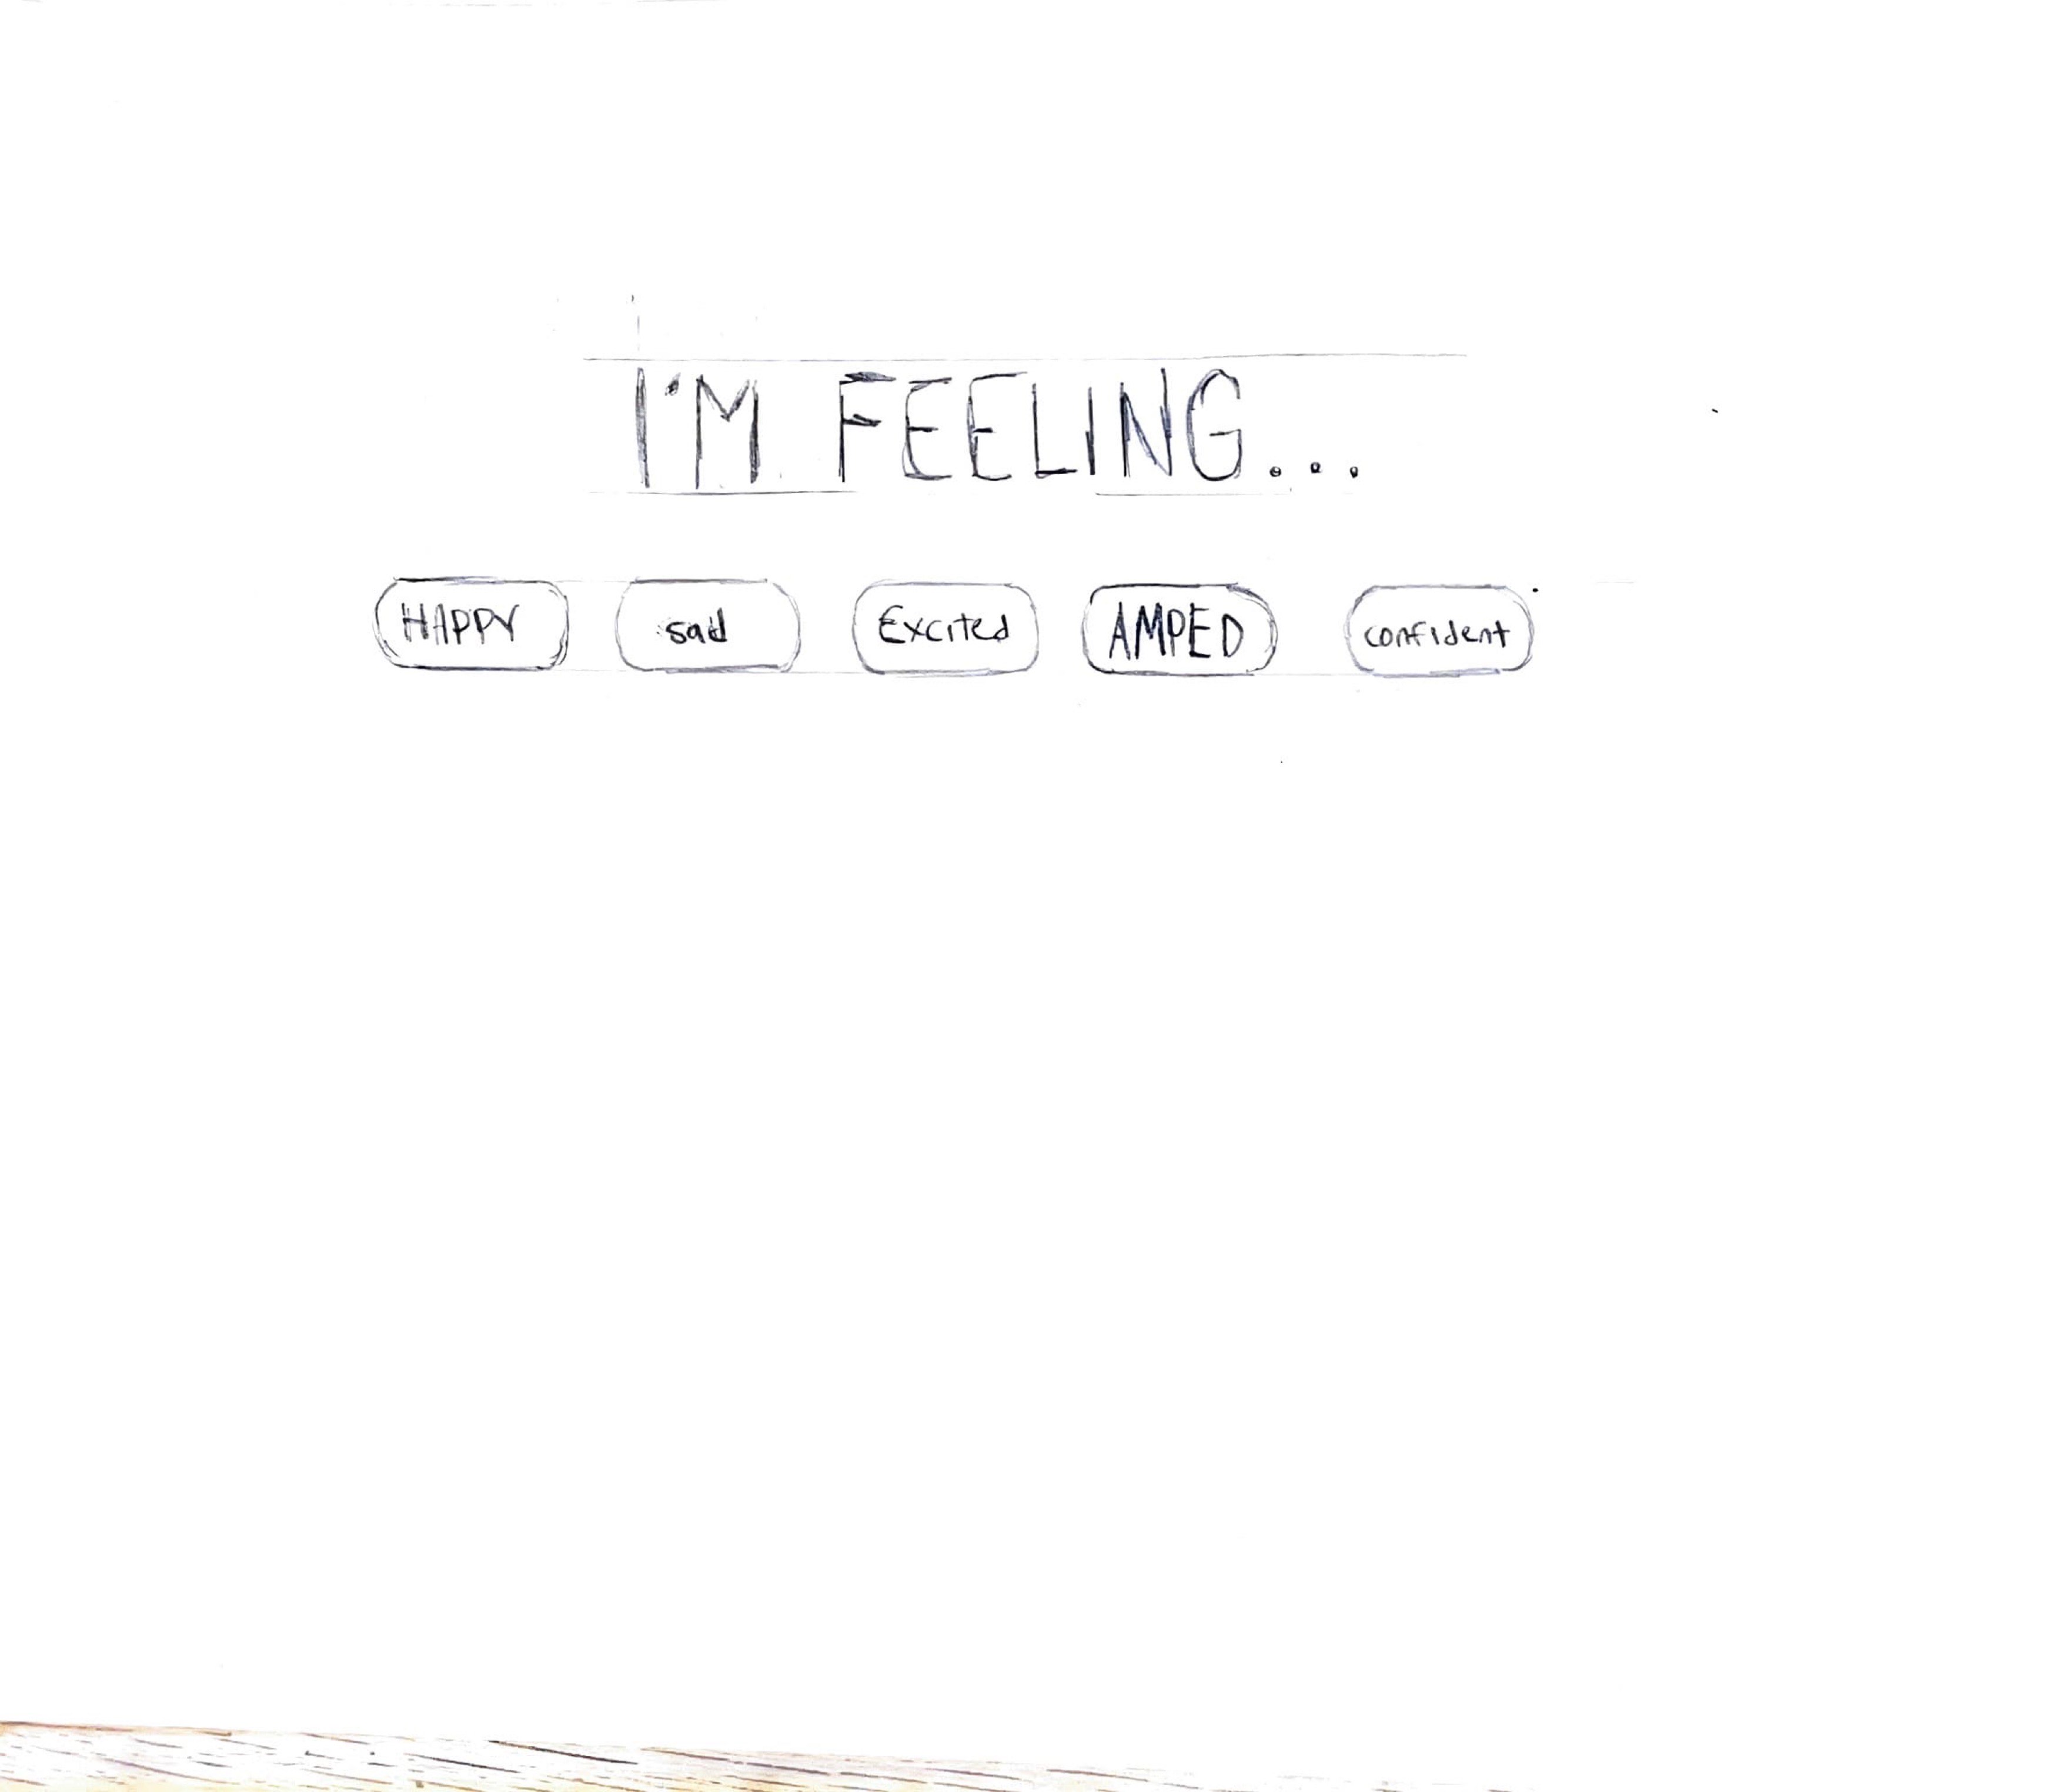 I'M FEELING...
HAPPY sad Excited AMPED confident